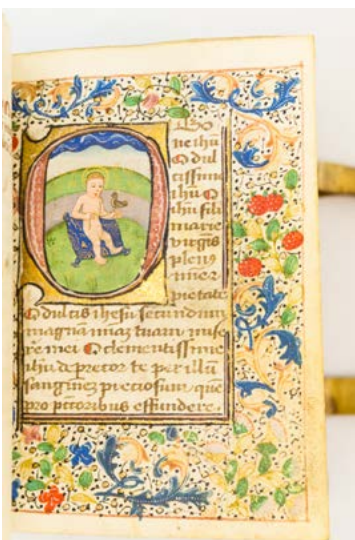 O Bo
ne ihu
O dul
cissime
ihu O
ihu fili
marie
virgis
plenꝰ
mie
pietate
O dulcis ihesu secundum
magnā miaz tuam mise
re mei O clementissime
ihu deprecor te per illū
sanguinez preciosum quē
pro pctoribus effundere